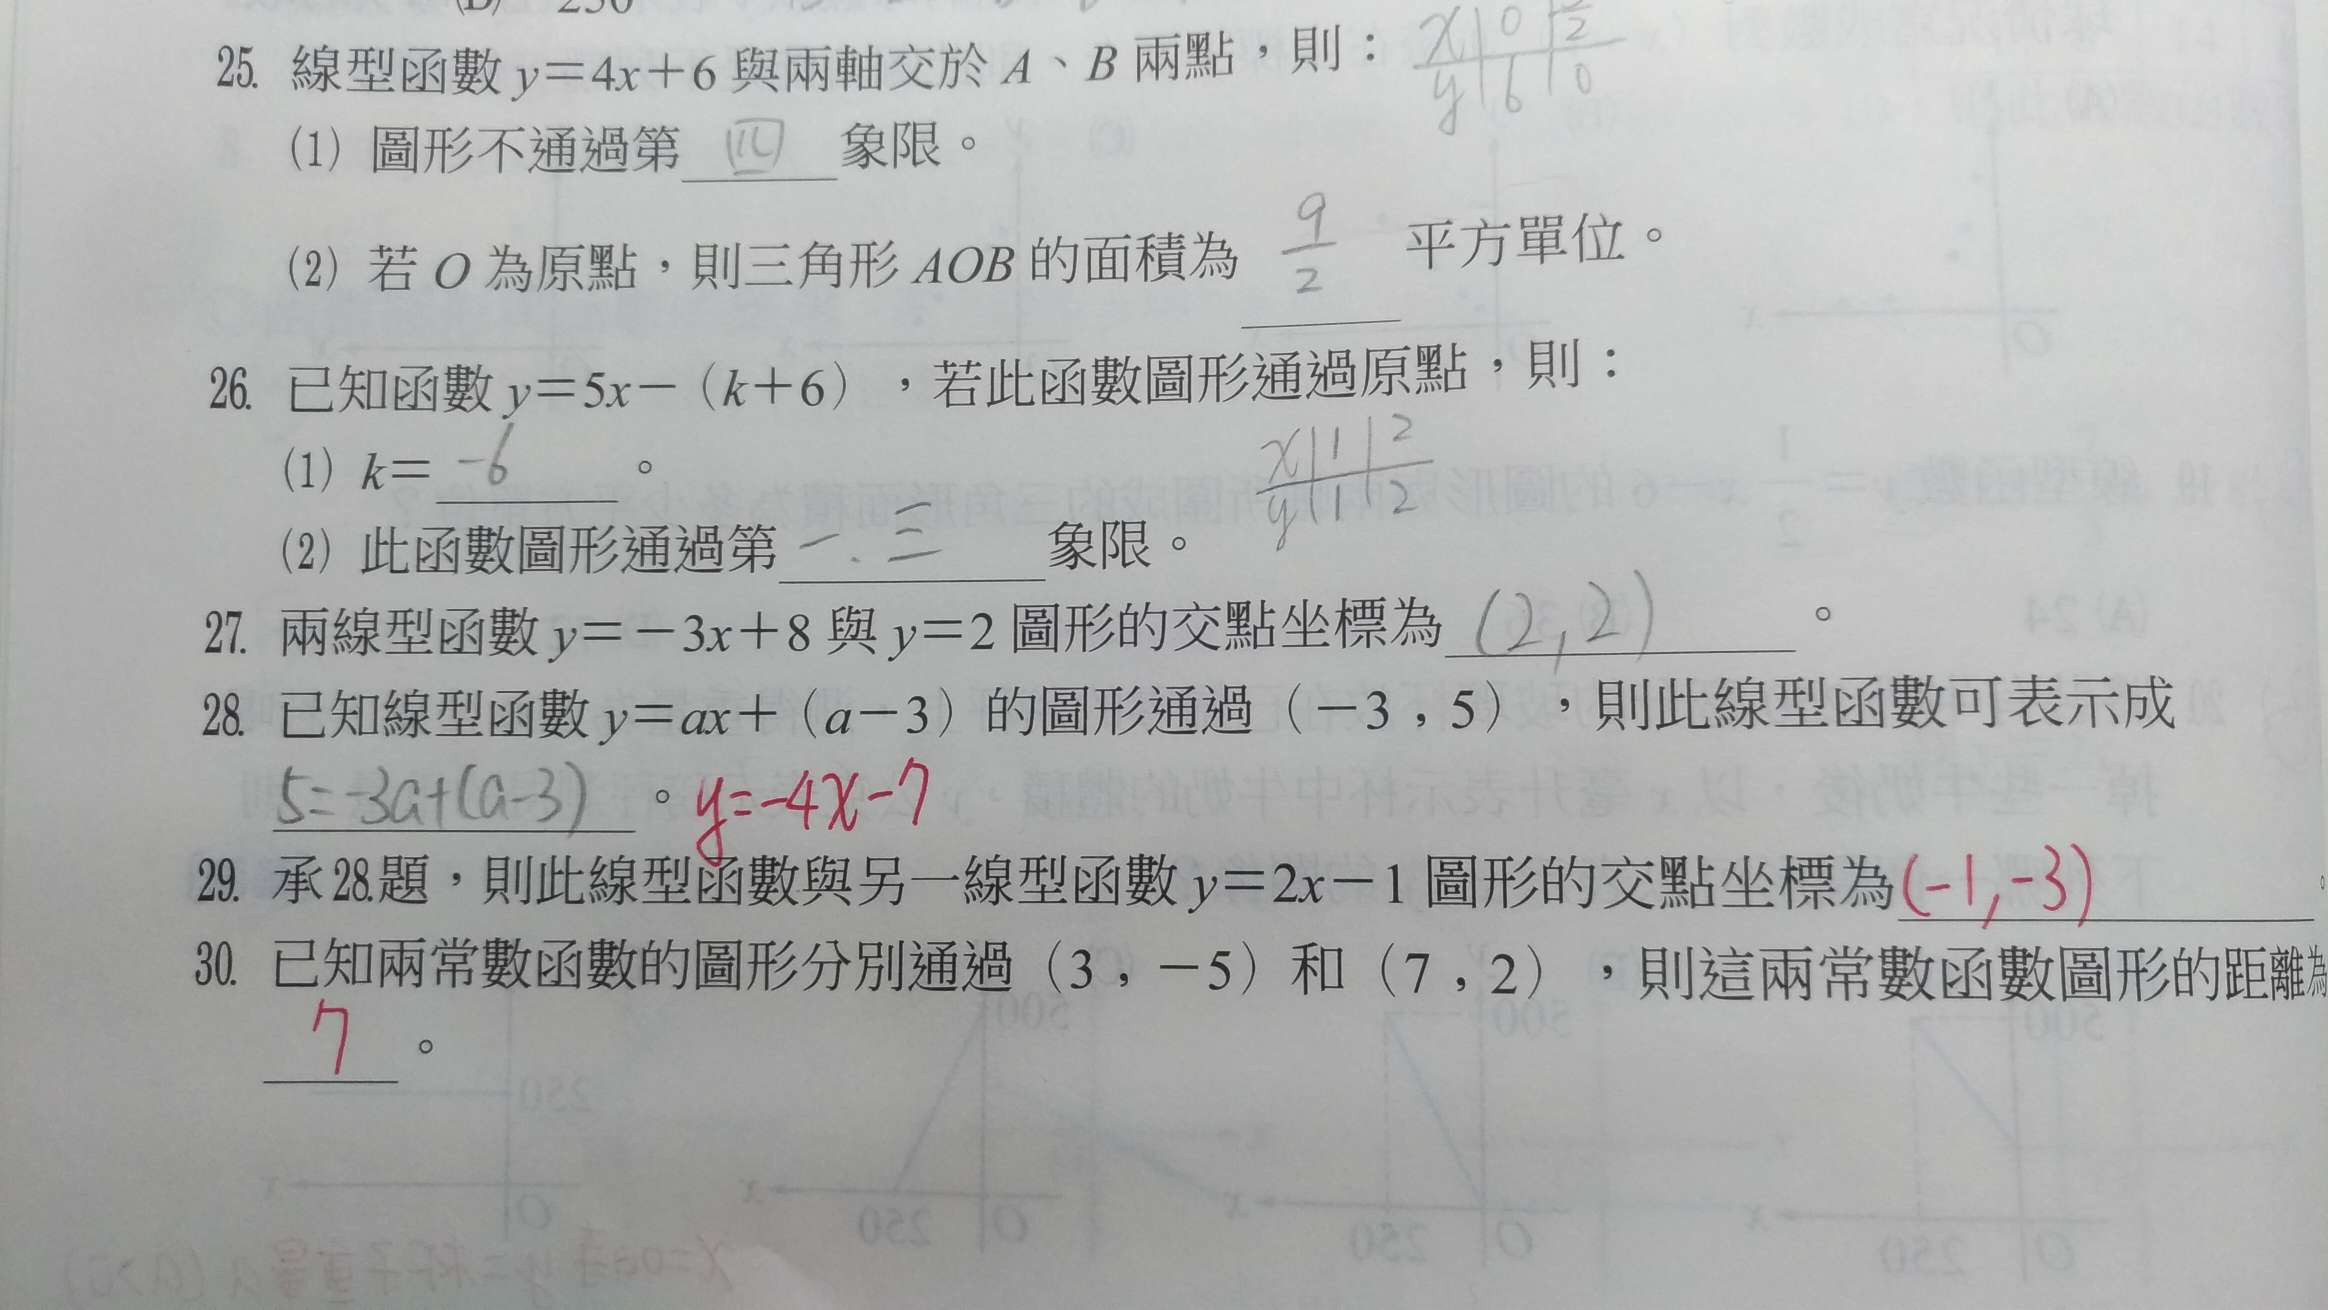 (D) 250
25. 線型函數 y＝4x＋6 與兩軸交於 A、B 兩點，則：
x 0
y 6 0
(1) 圖形不通過第 四 象限。
(2) 若 O 為原點，則三角形 AOB 的面積為 9/2 平方單位。
26. 已知函數 y＝5x－（k＋6），若此函數圖形通過原點，則：
(1) k＝ -6 。
x 1 2
y 1 2
(2) 此函數圖形通過第 一.三 象限。
27. 兩線型函數 y＝－3x＋8 與 y＝2 圖形的交點坐標為 (2,2) 。
28. 已知線型函數 y＝ax＋（a－3）的圖形通過（－3，5），則此線型函數可表示成
5=-3a+(a-3) 。y=-4x-7
29. 承28.題，則此線型函數與另一線型函數 y＝2x－1 圖形的交點坐標為 (-1,-3) 。
30. 已知兩常數函數的圖形分別通過（3，－5）和（7，2），則這兩常數函數圖形的距離為
7 。